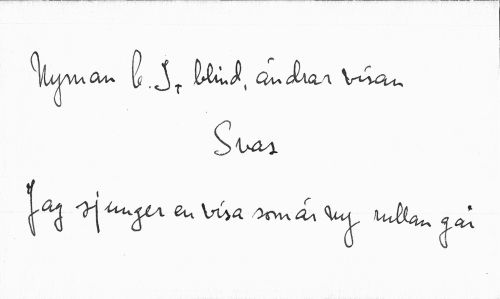 Nyman C. J, blind, ändrar visan
Svas
Jag sjunger en visa som är ny rullan går